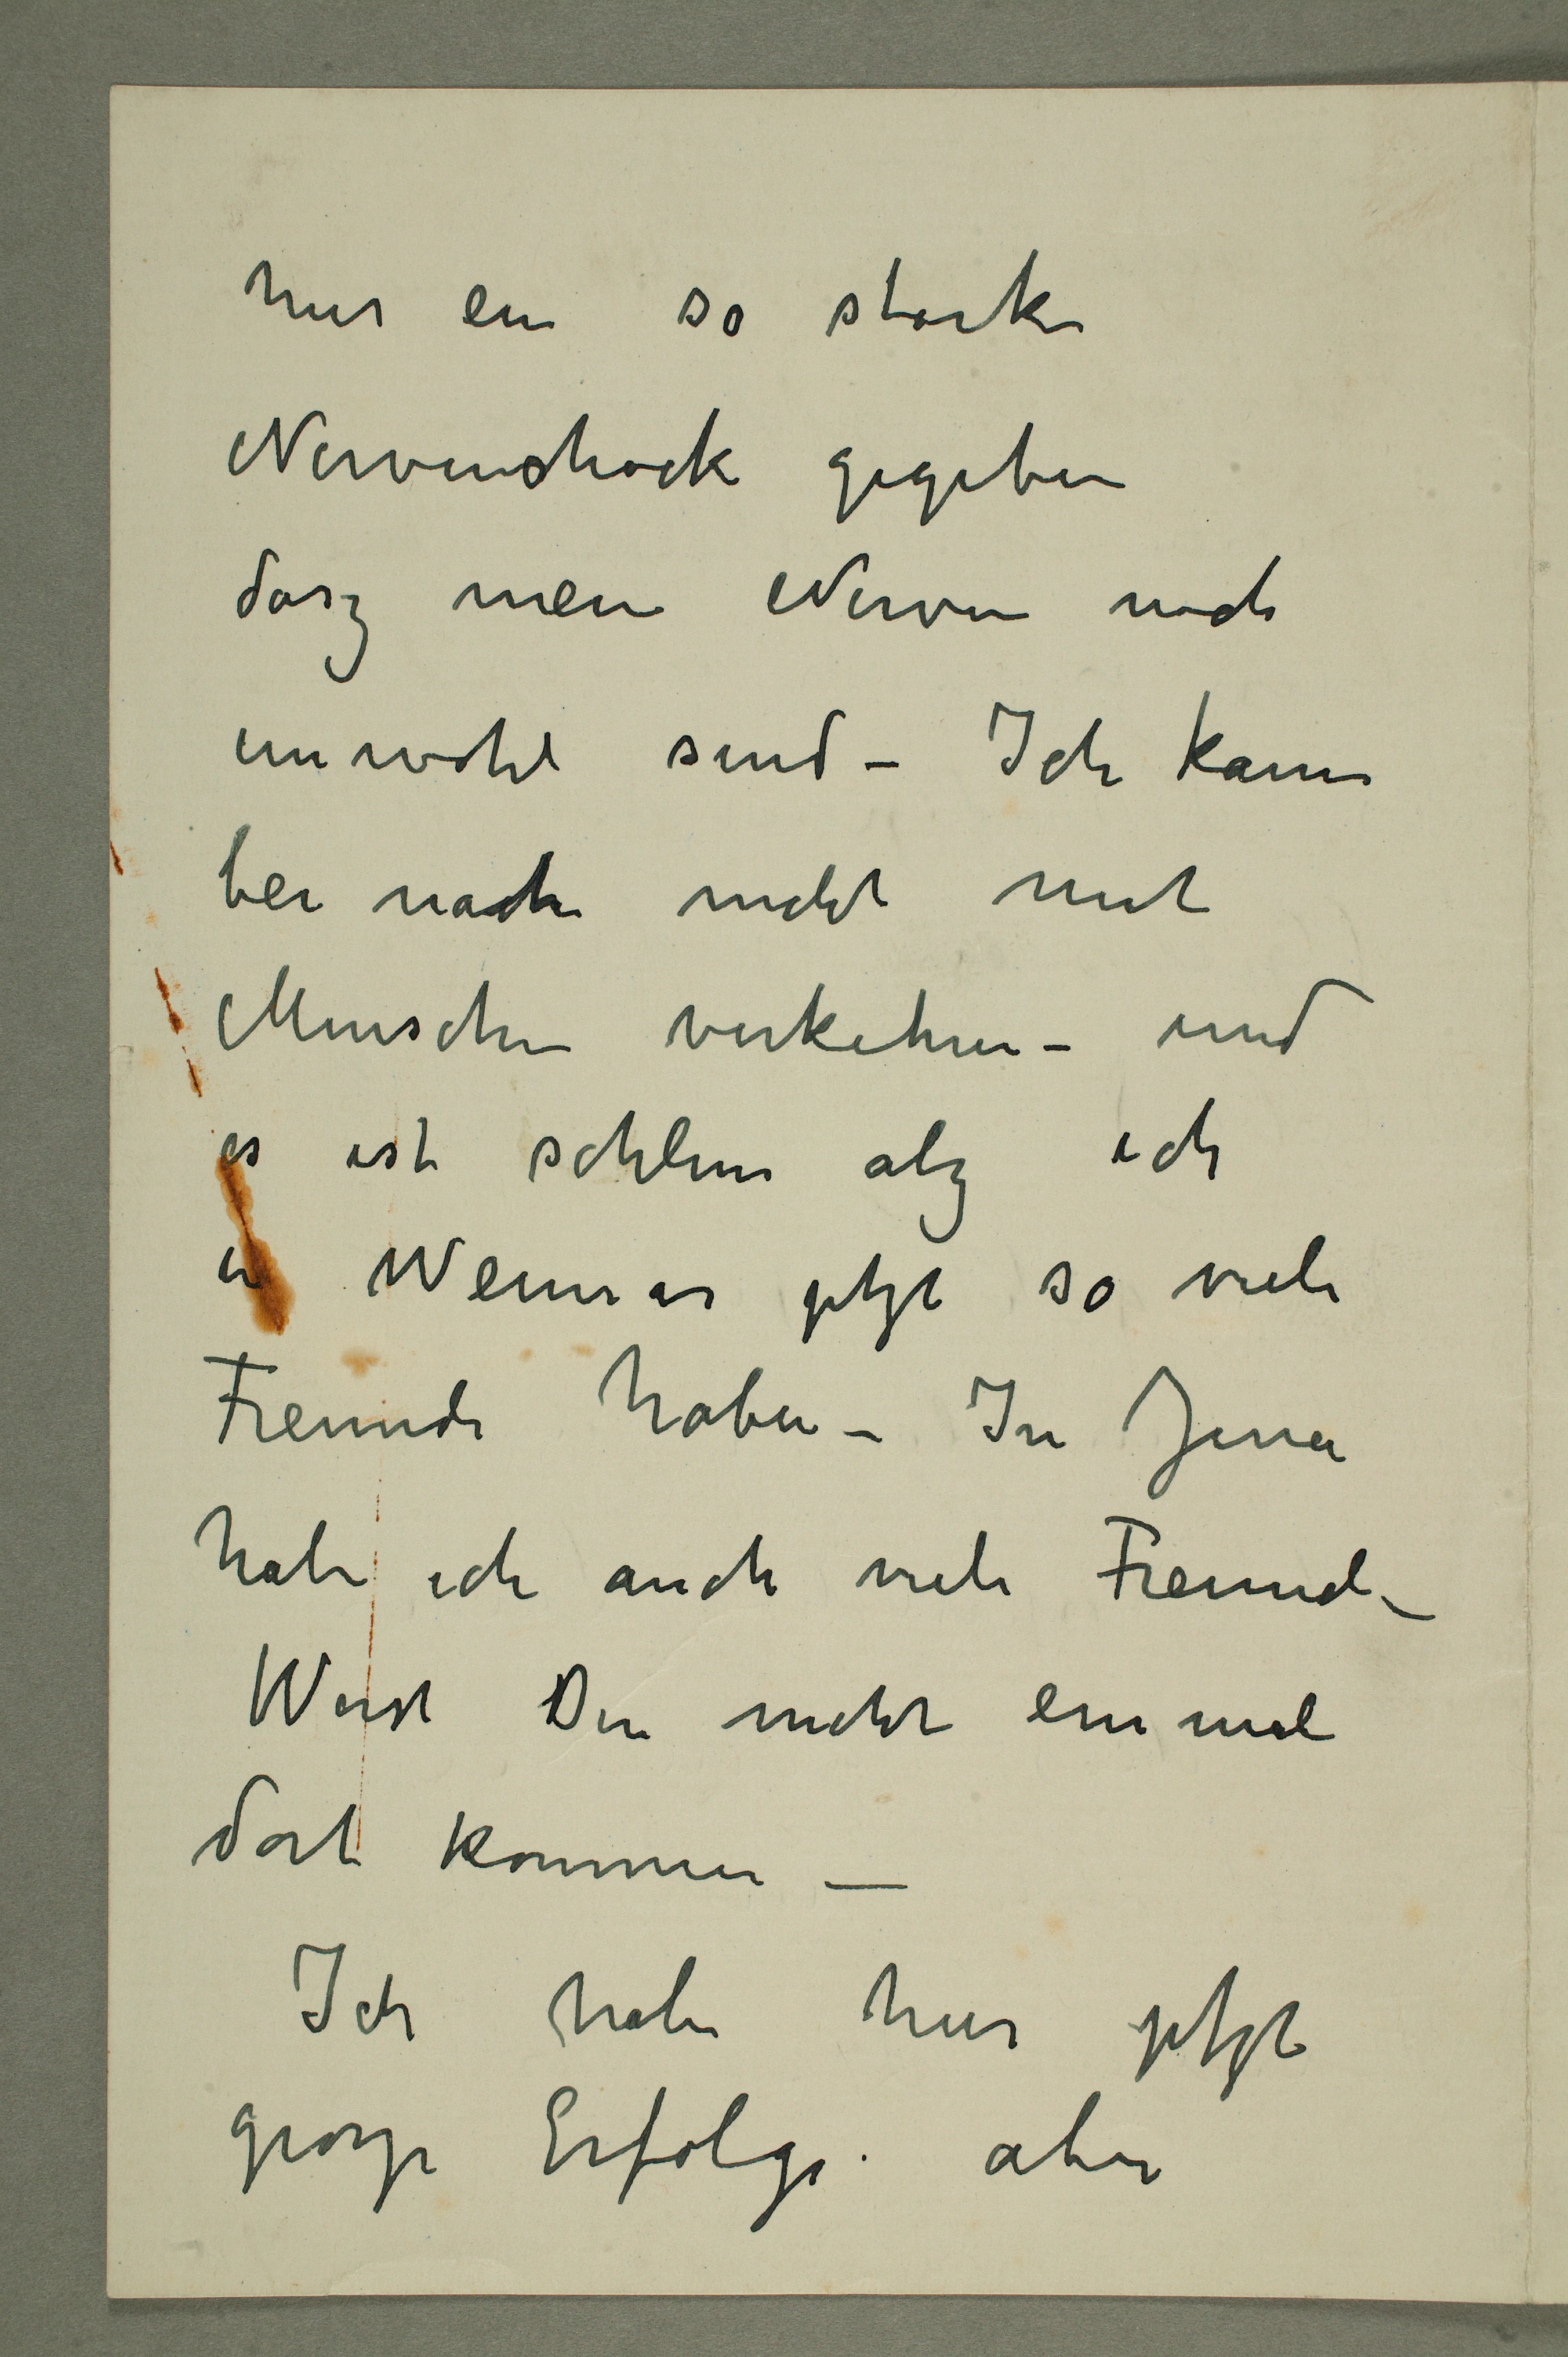 mir ein so starke
Nervenshock gegeben
dasz mein Nerven noch
unwohl sind – Ich kann
bei nach nicht mit
Menschen verkehren – und
es ist schlim alz ich
in Weimar jetzt so viele
Freunde haben – In Jena
habe ich auch viele Freunde –
Weist Du nicht einmal
dort kommen —
Ich habe hier jetzt
grosze Erfolge. aber